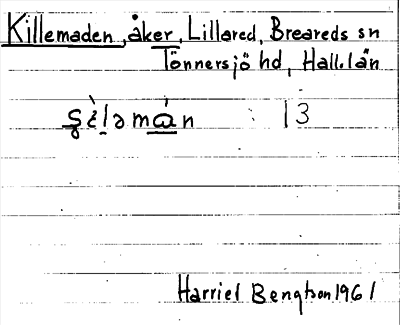 Killemaden, åker, Lillared, Breareds sn
Tönnersjö hd, Hall. län
13
Harriet Bengtson 1961